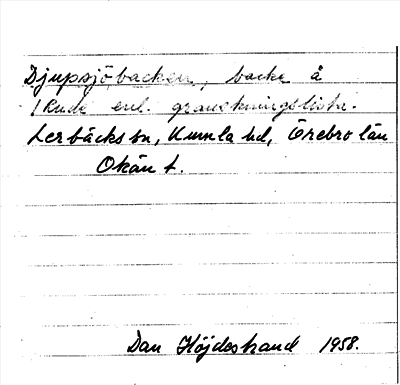 Djupsjöbacken, backe å
Rude enl. granskningslista.
Lerbäcks sn, Kumla hd, Örebro län
Okänt.
Dan Höjdestrand 1958.